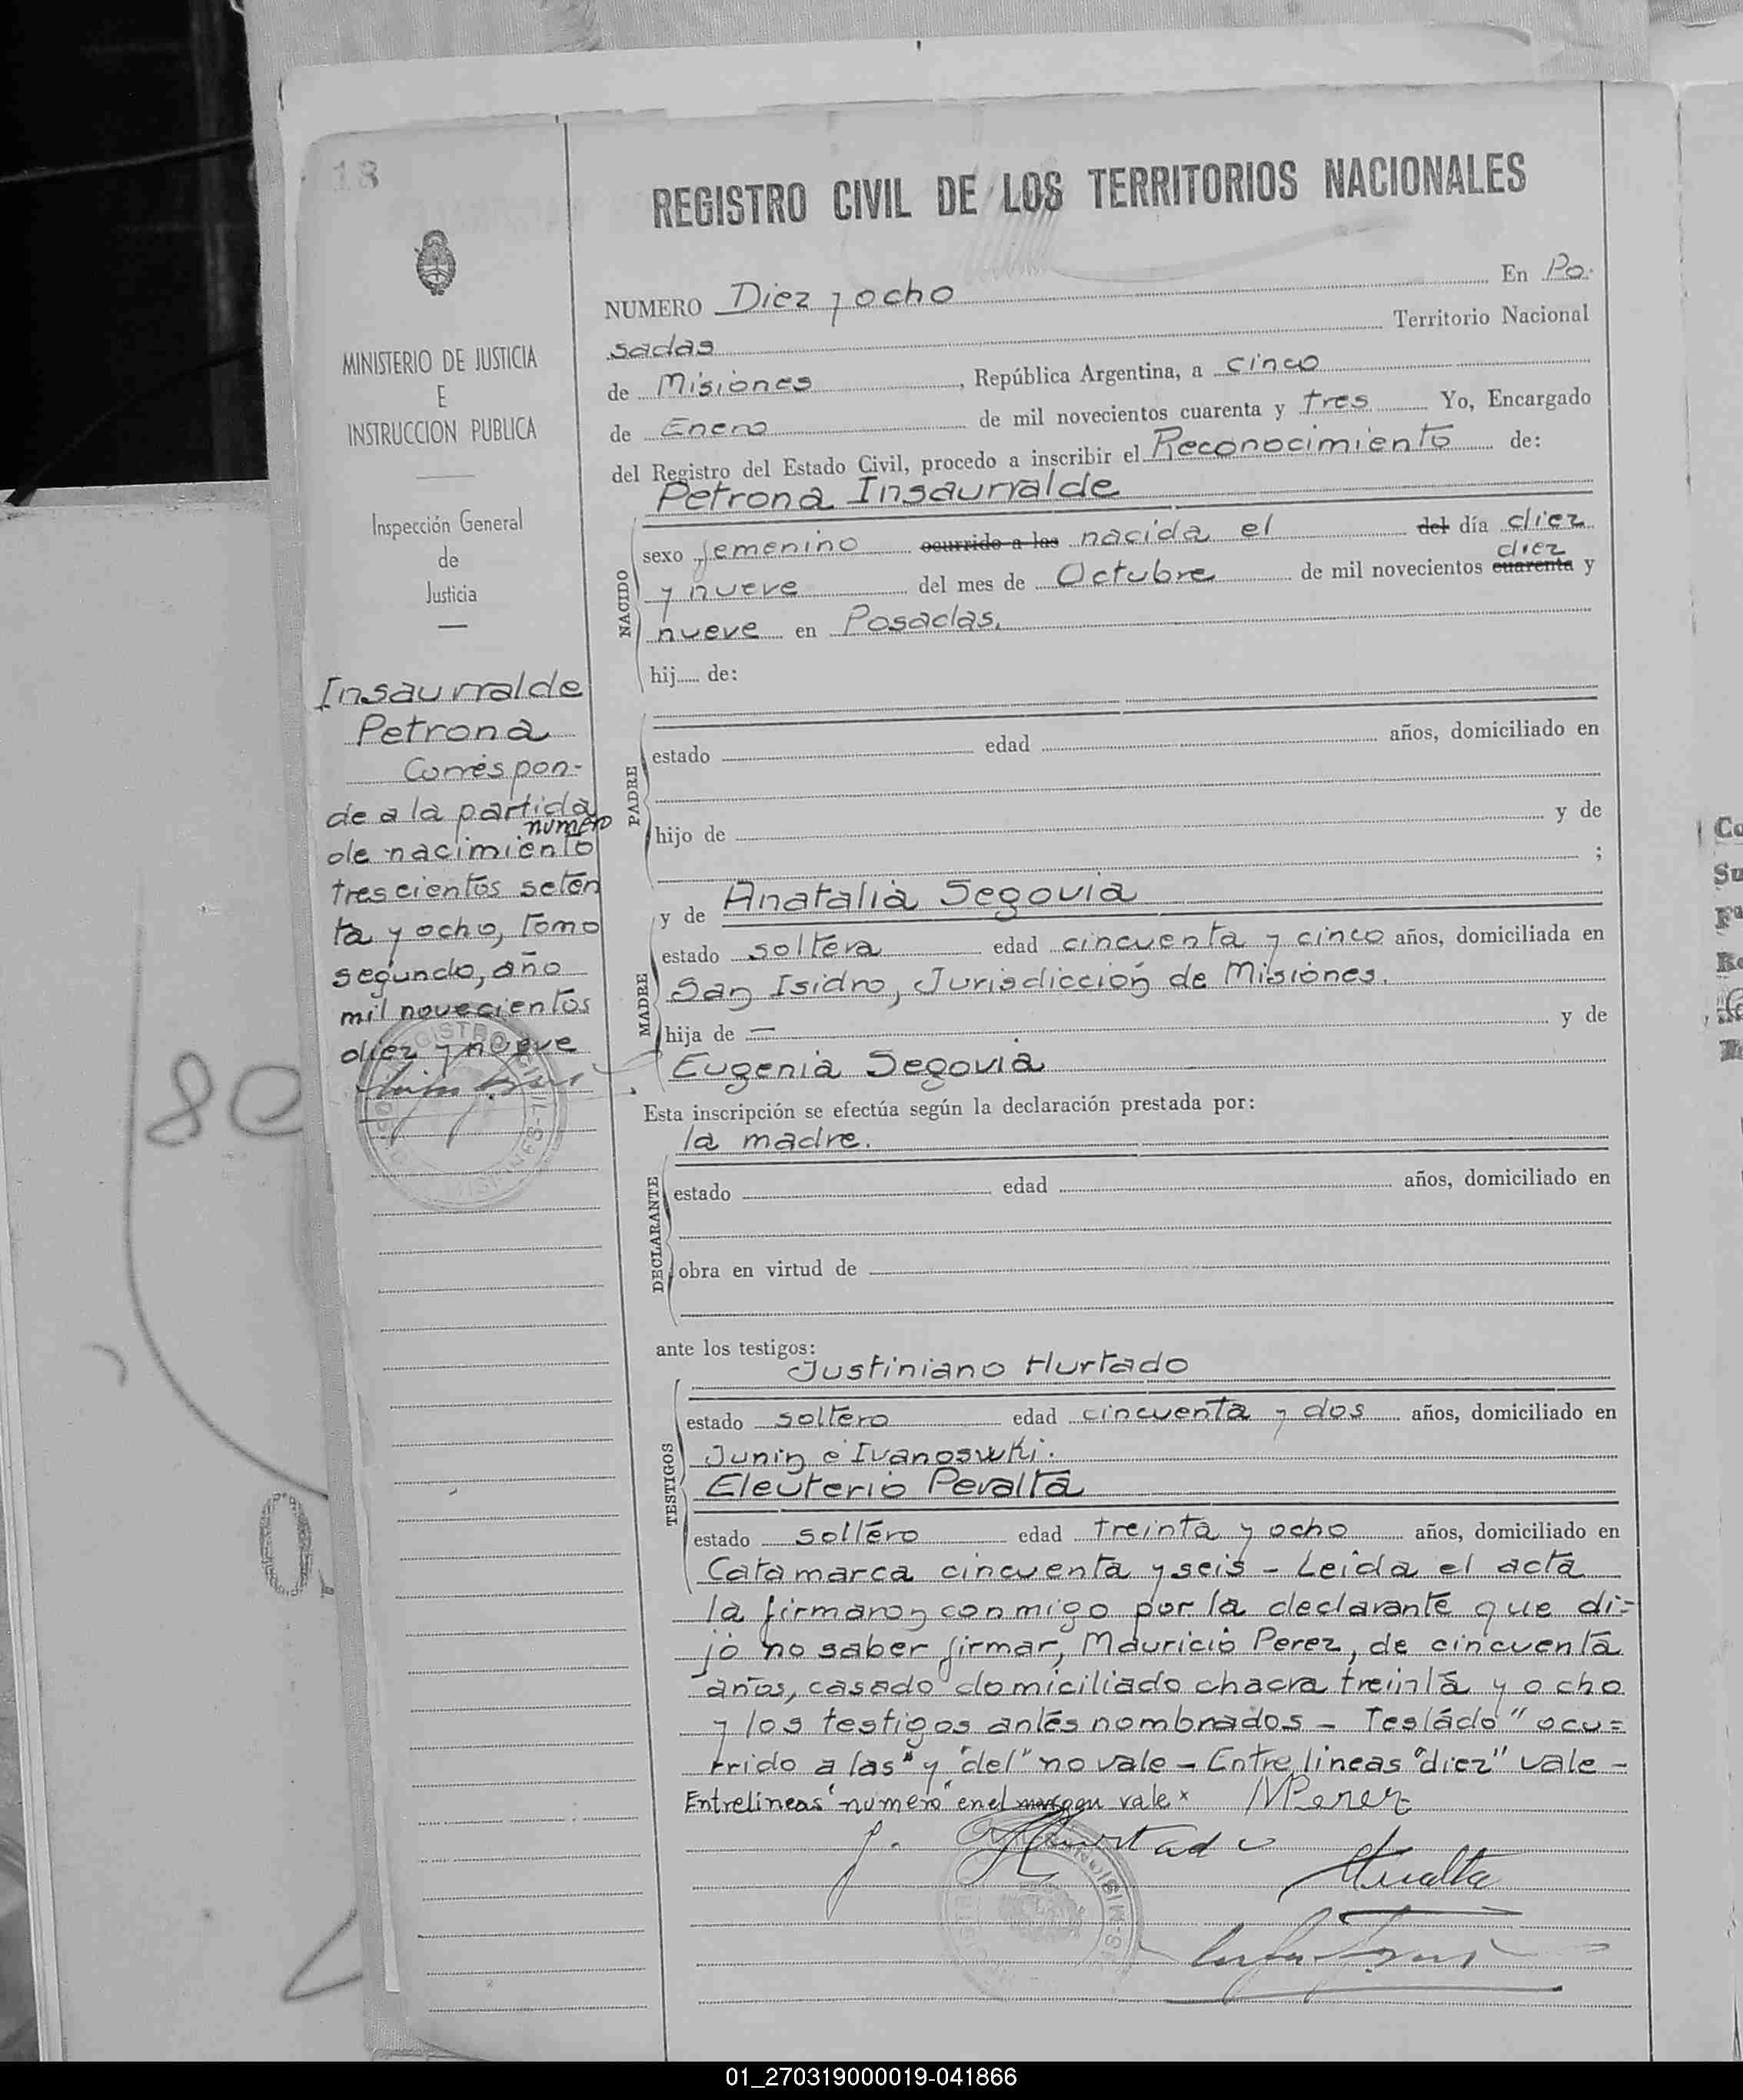 18
REGISTRO CIVIL DE LOS TERRITORIOS NACIONALES
MINISTERIO DE JUSTICIA
E
INSTRUCCION PUBLICA
Inspección General
de
Justicia
Insaurralde
Petrona
Correspon-
de a la partida
numero
de nacimiento
trescientos seten
ta y ocho, Tomo
segundo, año
mil novecientos
diez y nueve
NUMERO Diez y ocho En Po-
sadas Territorio Nacional
de Misiones, República Argentina, a cinco
de Enero de mil novecientos cuarenta y tres Yo, Encargado
del Registro del Estado Civil, procedo a inscribir el Reconocimiento de:
Petrona Insaurralde
NACIDO
sexo femenino ocurrido a las nacida el del día diez
diez
y nueve del mes de Octubre de mil novecientos cuarenta y
nueve en Posadas.
hij de:
PADRE
estado edad años, domiciliado en
hijo de y de
;
y de Anatalia Segovia
MADRE
estado soltera edad cincuenta y cinco años, domiciliada en
San Isidro, Jurisdicción de Misiones.
hija de — y de
Eugenia Segovia
Esta inscripción se efectúa según la declaración prestada por:
la madre.
DECLARANTE
estado edad años, domiciliado en
obra en virtud de
ante los testigos:
Justiniano Hurtado
TESTIGOS
estado soltero edad cincuenta y dos años, domiciliado en
Junin e Ivanoswki.
Eleuterio Peralta
estado soltero edad treinta y ocho años, domiciliado en
Catamarca cincuenta y seis - Leida el acta
la firmaron conmigo por la declarante que di=
jo no saber firmar, Mauricio Perez, de cincuenta
años, casado domiciliado chacra treinta y ocho
y los testigos antes nombrados - Testado "ocu=
rrido a las" y "del" no vale - Entre lineas "diez" vale -
Entrelineas "numero" en el vale x MPerez
J. Hurtado
EPeralta
80
O.
Co
Su
01_270319000019-041866